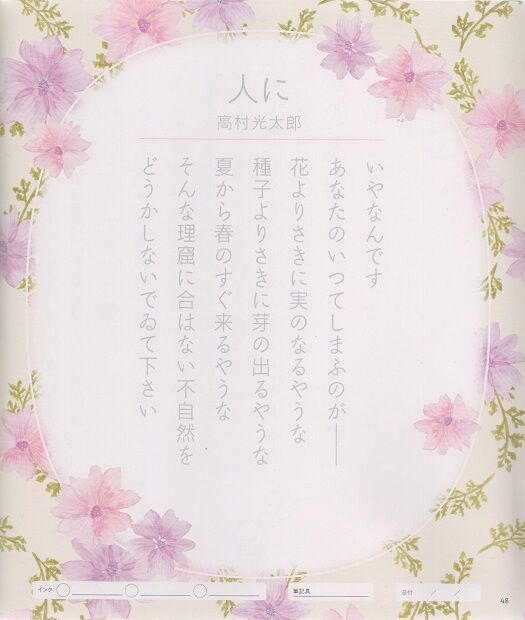 人に
高村光太郎
いやなんです
あなたのいつてしまふのが――
花よりさきに実のなるやうな
種子よりさきに芽の出るやうな
夏から春のすぐ来るやうな
そんな理窟に合はない不自然を
どうかしないでゐて下さい
インク
筆記具
日付 / /
48